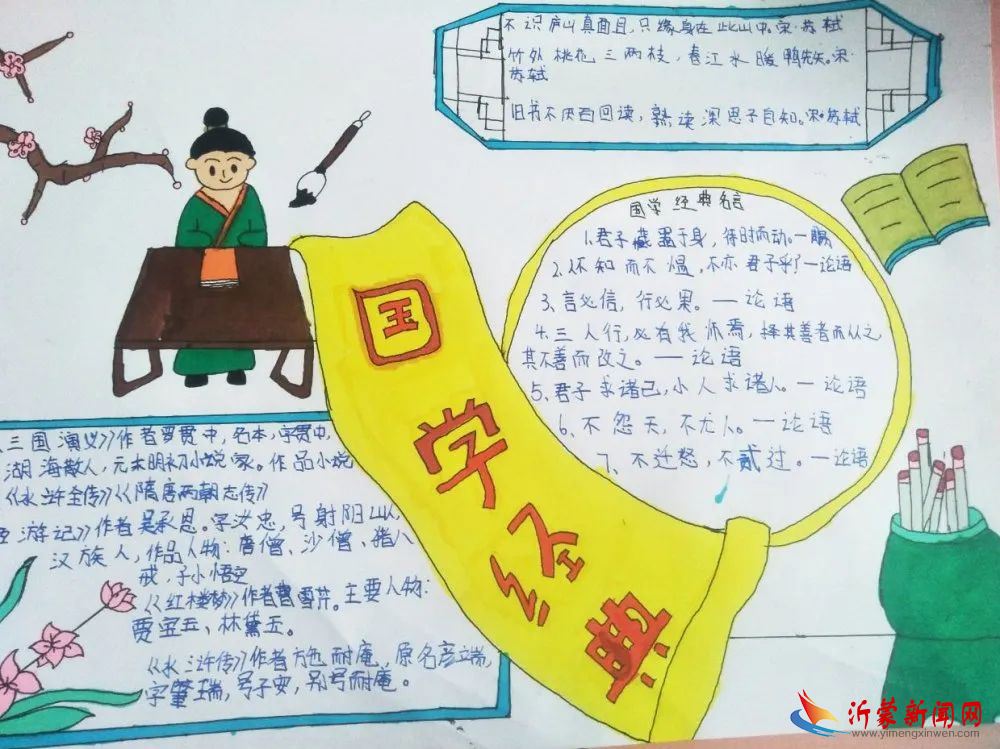 不识庐山真面目,只缘身在此山中。宋·苏轼
竹外桃花三两枝,春江水暖鸭先知。宋·
苏轼
旧书不厌百回读,熟读深思子自知。宋·苏轼
国学经典名言
1.君子藏器于身,待时而动。一
2.不知而不愠,不亦君子乎?一论语
3、言必信,行必果。一论语
4.三人行,必有我师焉,择其善者而从之,
其不善而改之。一论语
5、君子求诸己,小人求诸人。一论语
6、不怨天,不尤人。一论语
7、不迁怒,不贰过。一论语
国学经典
三国演义》作者罗贯中,名本,字贯中,
湖海散人,元末明初小说家。作品小说
《水浒全传》《隋唐两朝志传》
游记》作者吴承恩。字汝忠,号射阳山人
汉族人,作品人物:唐僧、沙僧、猪八
戒,孙悟空
《红楼梦》作者曹雪芹。主要人物:
贾宝玉、林黛玉。
《水浒传》作者施耐庵,原名彦端,
字肇瑞,号子安,别号耐庵。
沂蒙新闻网
www.yimengxinwen.com